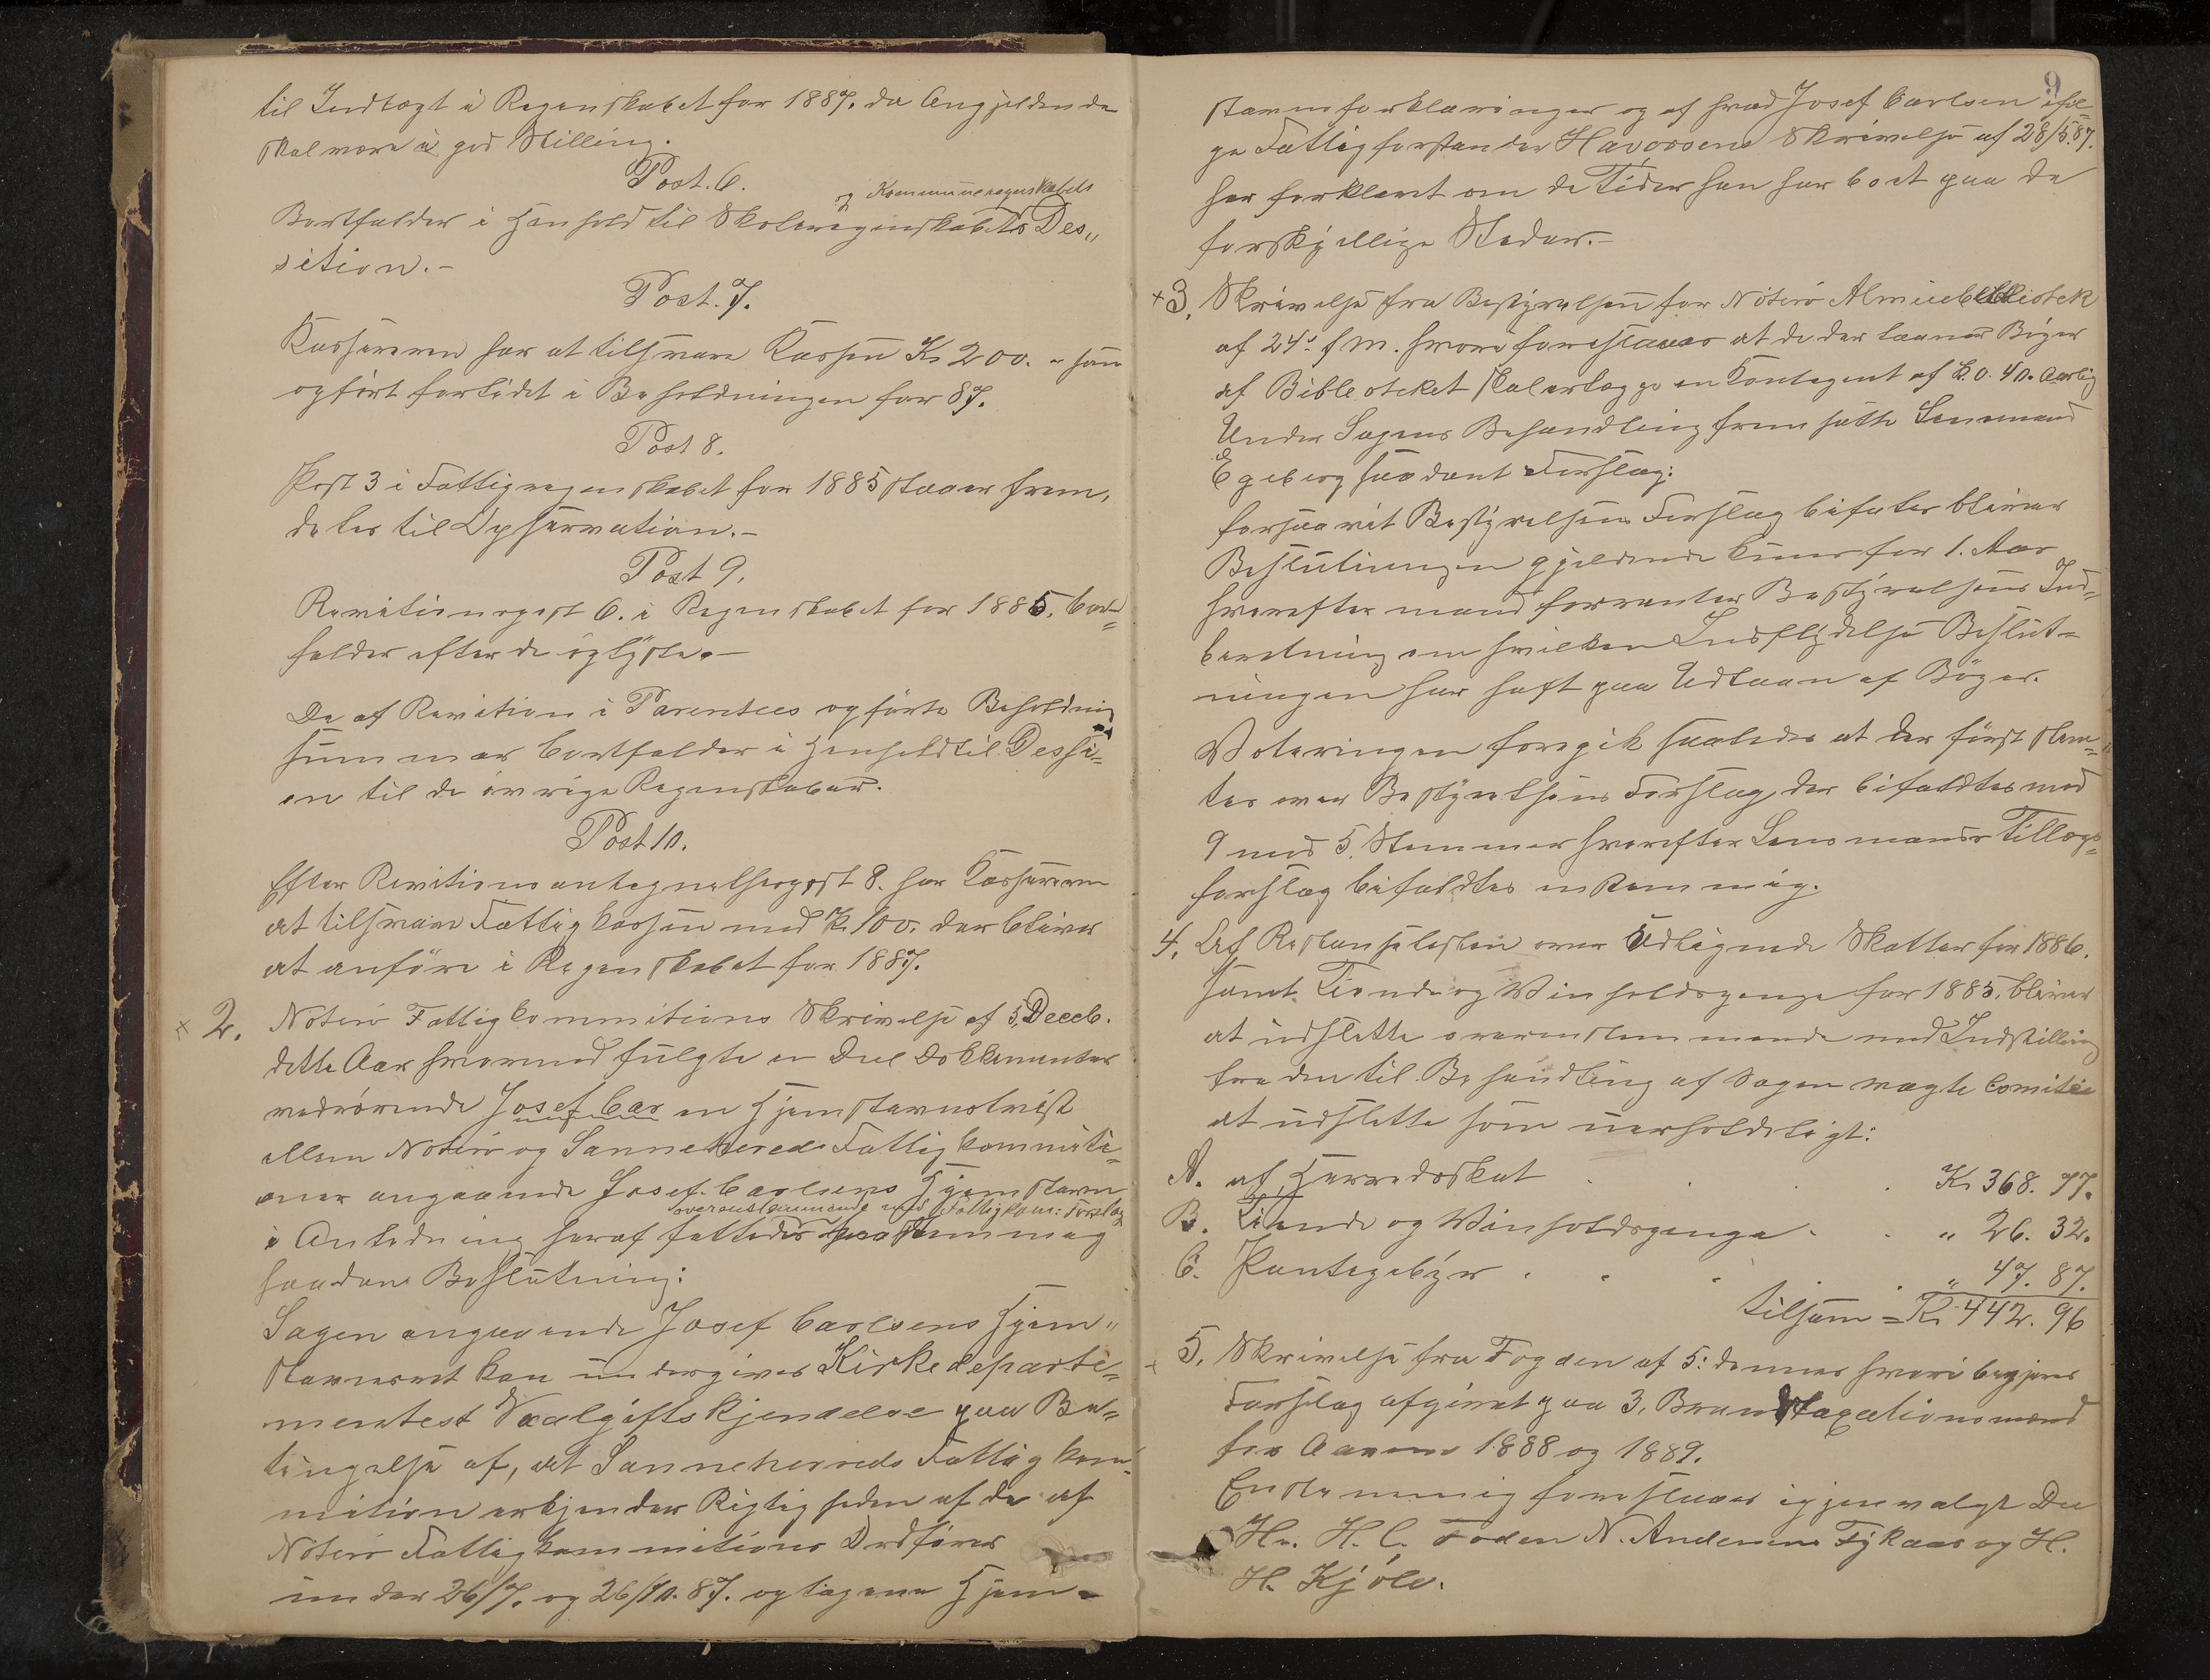 til Indtægt i Regenskabet for 1887. da Angjeldende
skal være i god Stilling.
Post. 6.
og Kommuneregnskabets
Bortfalder i Henhold til Skoleregenskabets Des„
sition.-
Post. 7.
Kassereren har at tilsvare Kassen Kr 200. - som
opført forledet i Beholdningen for 87.
Post 8.
Post 3 i Fattigregenskabet for 1885 staaer frem,
deles til Opservation.-
Post 9.
Revitionspost 6. i Regenskabet for 1885. bort=
falder efter de oplyste.-
De af Revition i Parentees opførte Beholdning
summer bortfalder i Henhold til Dessi=
on til de øvrige Regenskaber.
Post 10.
Efter Revitionsantegnelsespost 8. har Kassereren
at tilsvare Fattigkassen med K. 100. der bliver
at anføre i Regenskabet for 1887.
× 2. Nøterø Fattigkommitions Skrivelse af 5. Deceb.
dette Aar hvormed fulgte en Deel Dokkumenter
vedrørende Josef Car en Hjemstavnstvist
ellem Nøterø og Sanneherreds Fattigkommiti=
oner angaaende Josef Carlsens Hjemstavn
overenstemmende med Fattigkom: Forslag
i Anledning heraf fattedes enstemmig
saadan Beslutning:
Sagen angaaende Josef Carlsens Hjem„
stavnsret kan undergives Kirkedeparte=
mentest Voalgiftskjendelse paa Be=
tingelse af, at Sanneherreds Fattigkom=
mition erkjender Rigtigheden af de af
Nøterø Fattigkommitions Ordfører
under 26/7. og 26/10. 87. optagene Hjem=
9
stavnsforklaringer og af hvad Josef Carlsen iføl=
ge Fattigforstander Havorsens Skrivelse af 28/5.87.
har forklaret om de Tider han har boet paa de
forskjellige Steder.-
× 3. Skrivelse fra Bestyrelsen for Nøterø Almuebibliotek
af 24de f M. hvori foreslaaes at de der laaner Bøger
af Biblioteket skal erlægge en Kontegent af K. 0. 40. Aarlig
Under Sagens Behandling fremsatte Lensmand
Egeberg saadant Forslag:
forsaavit Bestyrelsens Forslag bifales bliver
Beslutningen gjeldende kuns for 1. Aar
hvorefter mand forventer Bestyrelsens Ind=
beretning om hvilken Indflydelse Beslut=
ningen har haft paa Udlaan af Bøger.
Voteringen foregik saaledes at der først stem=
tes over Bestyrelsens Forslag, der bifaldtes med
9 mod 5. Stemmer hvorefter Lensmands Tillægs=
forslag bifaldtes enstemmig.
4. Af Restanselisten over Udlignede Skatter for 1886.
samt Tiende og Vinholdspenge for 1885. bliver
at udslette overenstemmende med Indstilling
fra den til Behandling af Sagen valgte Comitee
at udslette som uerholdeligt:
A. af Herredsskat . . . Kr 368. 77.
B. Tiende og Vinholdspenge . . „ 26. 32.
C. Pantegebyr . . . . „ 47. 87.
tilsam = Kr 442. 96
× 5. Skrivelse fra Fogden af 5: dennes hvori begjæres
Forslag afgivet paa 3. Brandtaxationsmænd
for Aarene 1888 og 1889.
Enstemmig foreslaaes igjenvalgt De
Hr. H. C. Foden N. Andersen Fykaas og H.
H. Kjøle.